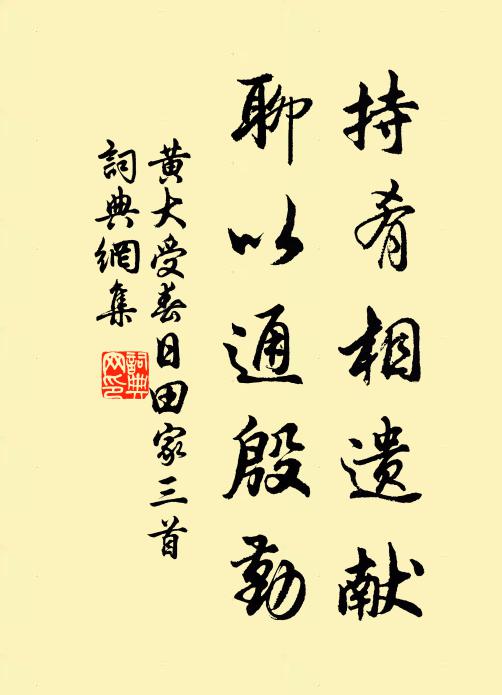 持肴相遗献
聊以通殷勤
黄大受春日田家三首
詞典網集
詞典网印